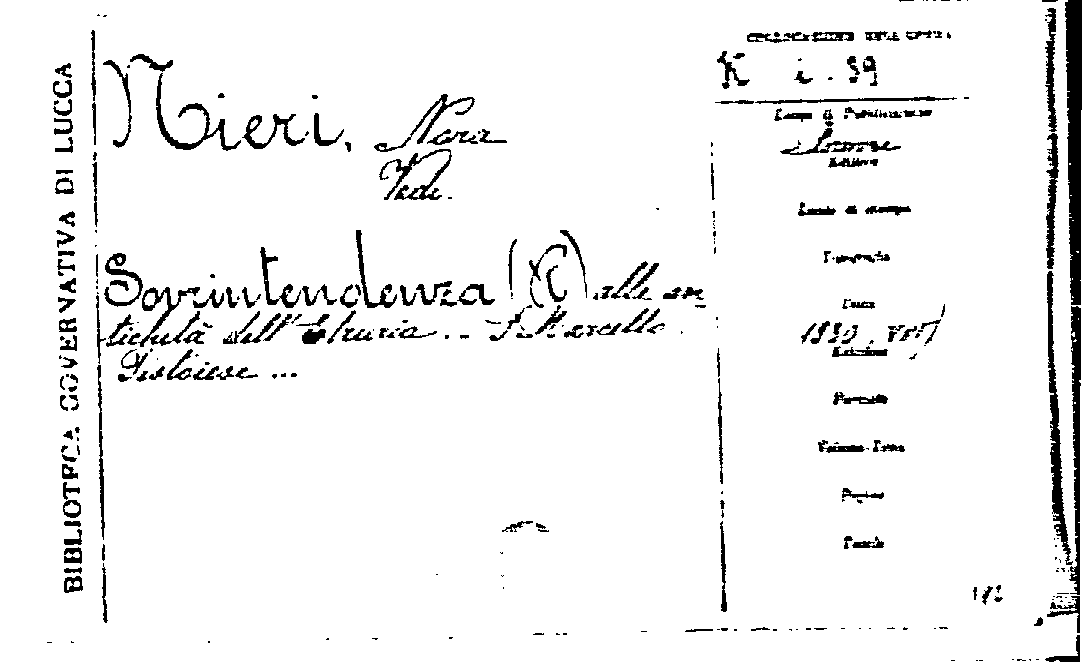 BIBLIOTECA GOVERNATIVA DI LUCCA
Nieri, Nara
Vedi.
Sovrintendenza (R) alle an
tichità dell'Etruria... S. Marcello
Pistoiese ...
COLLOCAZIONE DELL'OPERA
K i. 39
Luogo di Pubblicazione
Firenze
Editore
Luogo di stampa
Tipografia
Data
1930, VIII
Edizione
Formato
Volume-Tomo
Pagine
Tavole